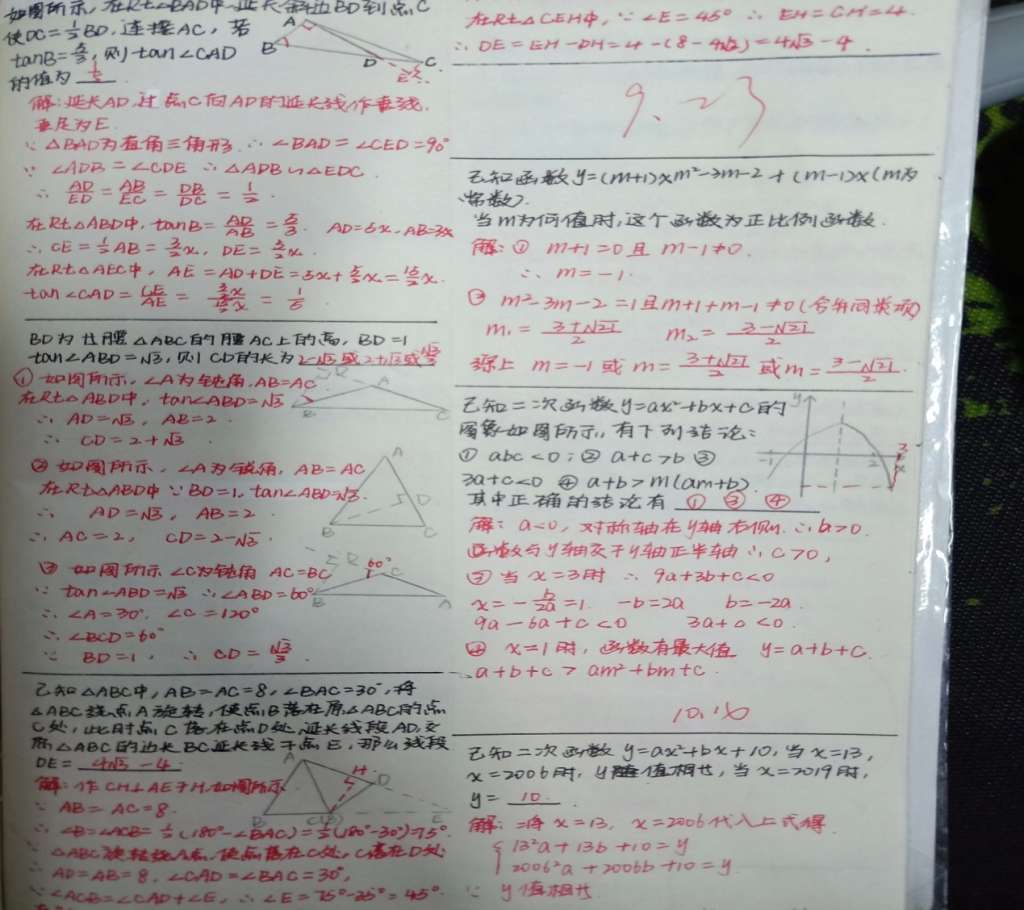 如图所示,在Rt△BAD中,延长斜边BD到点C
使DC=½BD,连接AC,若
tanB=5/3,则tan∠CAD
的值为 1/5
A
B
D
C
E
解:延长AD,过点C向AD的延长线作垂线,
垂足为E.
∵ △BAD为直角三角形 ∴ ∠BAD=∠CED=90°
∵ ∠ADB=∠CDE ∴ △ADB∽△EDC
∴ AD/ED = AB/EC = DB/DC =
在Rt△ABD中,tanB= AD/AB = 5/3. AD=5x,AB=3x
∴ CE=½AB=3/2x,DE=5/2x.
在Rt△AEC中,AE=AD+DE=5x+5/2x=15/2x.
tan∠CAD= CE/AE = 3/2x/15/2x = 1/5
BD为 △ABC的腰AC上的高,BD=1
tan∠ABD=√3,则CD的长为 2-√3或2+√3或√3/3
① 如图所示,∠A为钝角,AB=AC
在Rt△ABD中,tan∠ABD=√3
∴ AD=√3,AB=2
∴ CD=2+√3
D
A
B
C
② 如图所示,∠A为锐角,AB=AC
在Rt△ABD中∵BD=1,tan∠ABD=√3.
∴ AD=√3,AB=2
∴ AC=2,CD=2-√3.
A
D
B
C
③ 如图所示 ∠C为钝角 AC=BC
∵ tan∠ABD=√3 ∴ ∠ABD=60°
∴ ∠A=30°,∠C=120°
∴ ∠BCD=60°
∵ BD=1,∴ CD=√3/3
D
60°
C
B
A
已知△ABC中,AB=AC=8,∠BAC=30°,将
△ABC绕点A旋转,使点B落在原△ABC的点
C处,此时点C落在点D处,延长线段AD,交
原△ABC的边长BC延长线于点E,那么线段
DE= 4√3-4
解:作CH⊥AE于H,如图所示
∵ AB=AC=8
∴ ∠B=∠ACB=½(180°-∠BAC)=½(180°-30°)=75°.
∵ △ABC旋转绕A点,使点落在C处,C落在D处
∴ AD=AB=8,∠CAD=∠BAC=30°,
∵ ∠ACB=∠CAD+∠E,∴ ∠E=75°-35°=45°.
A
H
D
B
C(B)
E
在Rt△CEH中,∵ ∠E=45° ∴ EH=CH=4.
∴ DE=EH-DH=4-(8-4√3)=4√3-4.
9.23
已知函数y=(m+1)x^m²-3m-2+(m-1)x(m为
常数).
当m为何值时,这个函数为正比例函数.
解:① m+1=0且 m-1≠0.
∴ m=-1.
② m²-3m-2=1且m+1+m-1≠0(合并同类项)
m₁=3+√21/2 m₂=3-√21/2
综上 m=-1或m=3+√21/2或m=3-√21/2.
已知二次函数y=ax²+bx+c的
图象如图所示,有下列结论:
① abc<0;② a+c>b ③
3a+c<0 ④ a+b>m(am+b)
其中正确的结论有 ① ③ ④
y
-1
2
3
x
解:a<0,对称轴在y轴右侧 ∴b>0.
函数与y轴交于y轴正半轴∴c>0,
③ 当x=3时 ∴ 9a+3b+c<0
x=-b/2a=1. -b=2a b=-2a.
9a-6a+c<0 3a+c<0.
④ x=1时,函数有最大值 y=a+b+c.
a+b+c>am²+bm+c.
10.16
已知二次函数y=ax²+bx+10,当x=13,
x=2006时,y 值相 ,当x=2019时,
y= 10.
解:将x=13,x=2006代入上式得
13²a+13b+10=y
2006²a+2006b+10=y.
∵ y值相